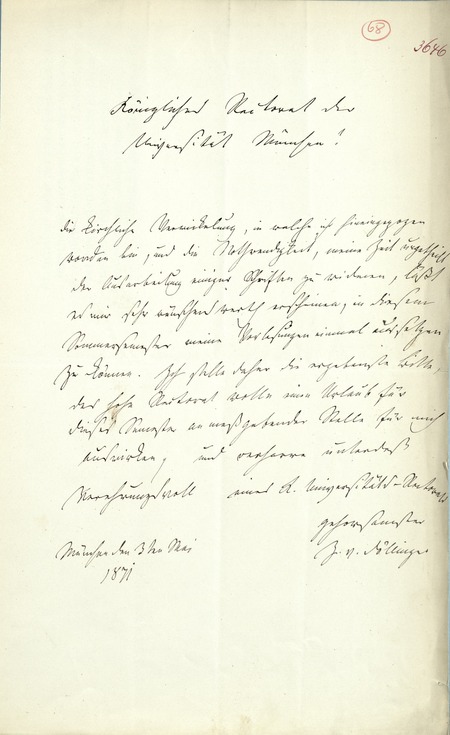 68
3646
Königliches Rectorat der
Universität München!
Die kirchliche Verwickelung, in welche ich hineingezogen
worden bin, und die Nothwendigkeit, meine Zeit ungetheilt
der Ausarbeitung einiger Schriften zu widmen, läßt
es mir sehr wünschenswerth erscheinen, in diesem
Sommersemester meine Vorlesungen einmal aussetzen
zu können. Ich stelle daher die ergebenste Bitte,
das hohe Rectorat wolle einen Urlaub für
dieses Semester an maßgebender Stelle für mich
auswirken, und verharre unterdeß
Verehrungsvoll eines K. Universitäts-Rectorats
gehorsamster
München den 3ten Mai
J. v. Döllinger
1871